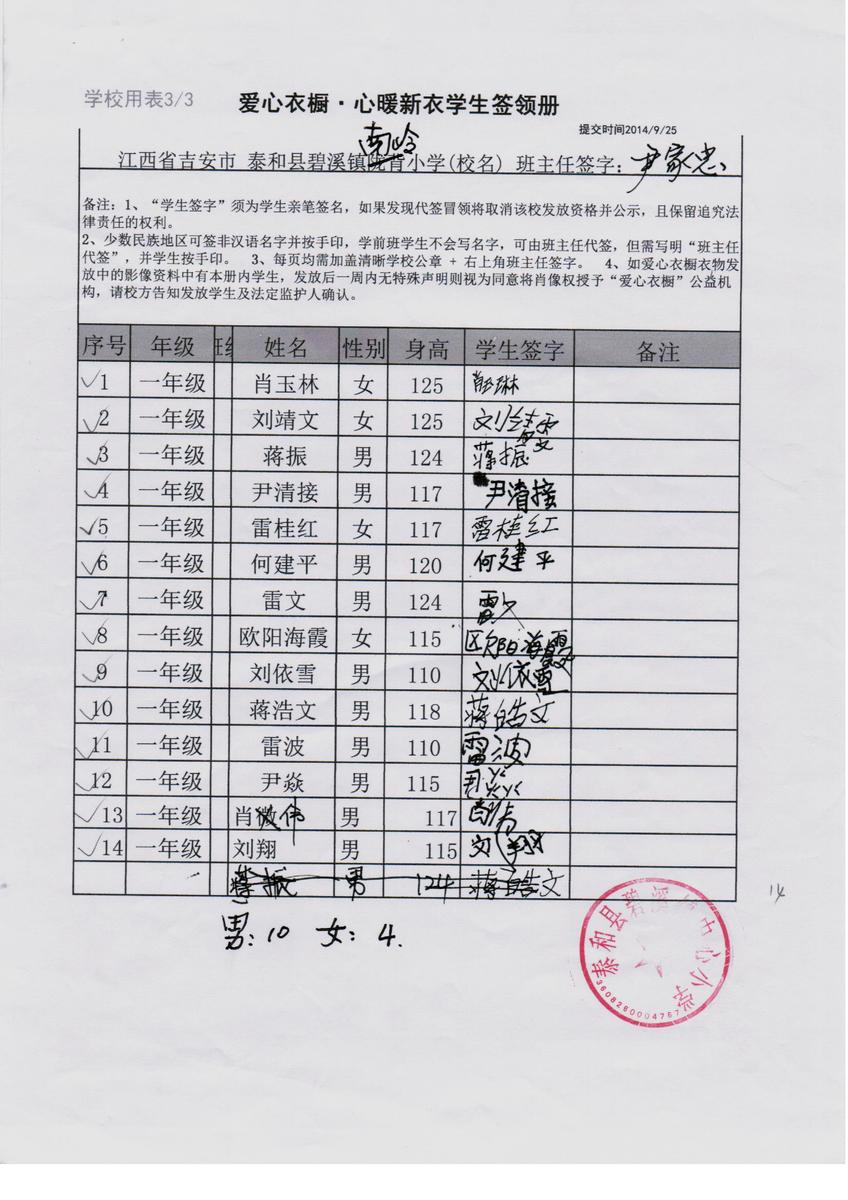 学校用表3/3
爱心衣橱·心暖新衣学生签领册
提交时间2014/9/25
南岭
江西省吉安市 泰和县碧溪镇陇背小学(校名) 班主任签字：尹家忠
备注：1、“学生签字”须为学生亲笔签名，如果发现代签冒领将取消该校发放资格并公示，且保留追究法
律责任的权利。
2、少数民族地区可签非汉语名字并按手印，学前班学生不会写名字，可由班主任代签，但需写明“班主任
代签”，并学生按手印。 3、每页均需加盖清晰学校公章 + 右上角班主任签字。 4、如爱心衣橱衣物发
放中的影像资料中有本册内学生，发放后一周内无特殊声明则视为同意将肖像权授予“爱心衣橱”公益机
构，请校方告知发放学生及法定监护人确认。
序号 年级 班级 姓名 性别 身高 学生签字 备注
✓1 一年级 肖玉林 女 125 肖玉琳
✓2 一年级 刘靖文 女 125 刘靖雯
✓3 一年级 蒋振 男 124 蒋振
✓4 一年级 尹清接 男 117 尹清接
✓5 一年级 雷桂红 女 117 雷桂红
✓6 一年级 何建平 男 120 何建平
✓7 一年级 雷文 男 124 雷文
✓8 一年级 欧阳海霞 女 115 欧阳海霞
✓9 一年级 刘依雪 男 110 刘依雪
✓10 一年级 蒋浩文 男 118 蒋皓文
✓11 一年级 雷波 男 110 雷波
✓12 一年级 尹焱 男 115 尹焱
✓13 一年级 肖伟 男 117 肖伟
✓14 一年级 刘翔 男 115 刘翔
蒋振 男 124 蒋皓文
14
男：10 女：4.
泰和县碧溪镇中心小学
3608260004767